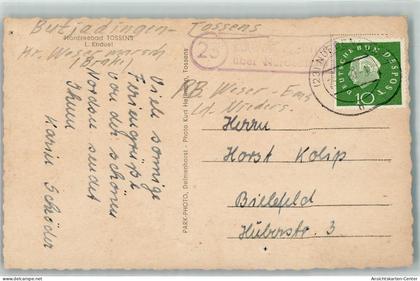 Butjadingen - Tossens
Nordseebad TOSSENS
Kr. Wesermarsch
(Brake)
RB. Weser-Ems
Ld. Nieders.
(23)
über
DEUTSCHE BUNDESPOST
10
Viele sonnige
Feriengrüße
von der schönen
Nordsee sendet
Ihnen
Karin Schröder
PARK-PHOTO, Delmenhorst - Photo Kurt Tossens
Herrn
Horst Kolip
Bielefeld
Huberstr. 3
www.ansichtskartenversand.com
Ansichtskarten-Center